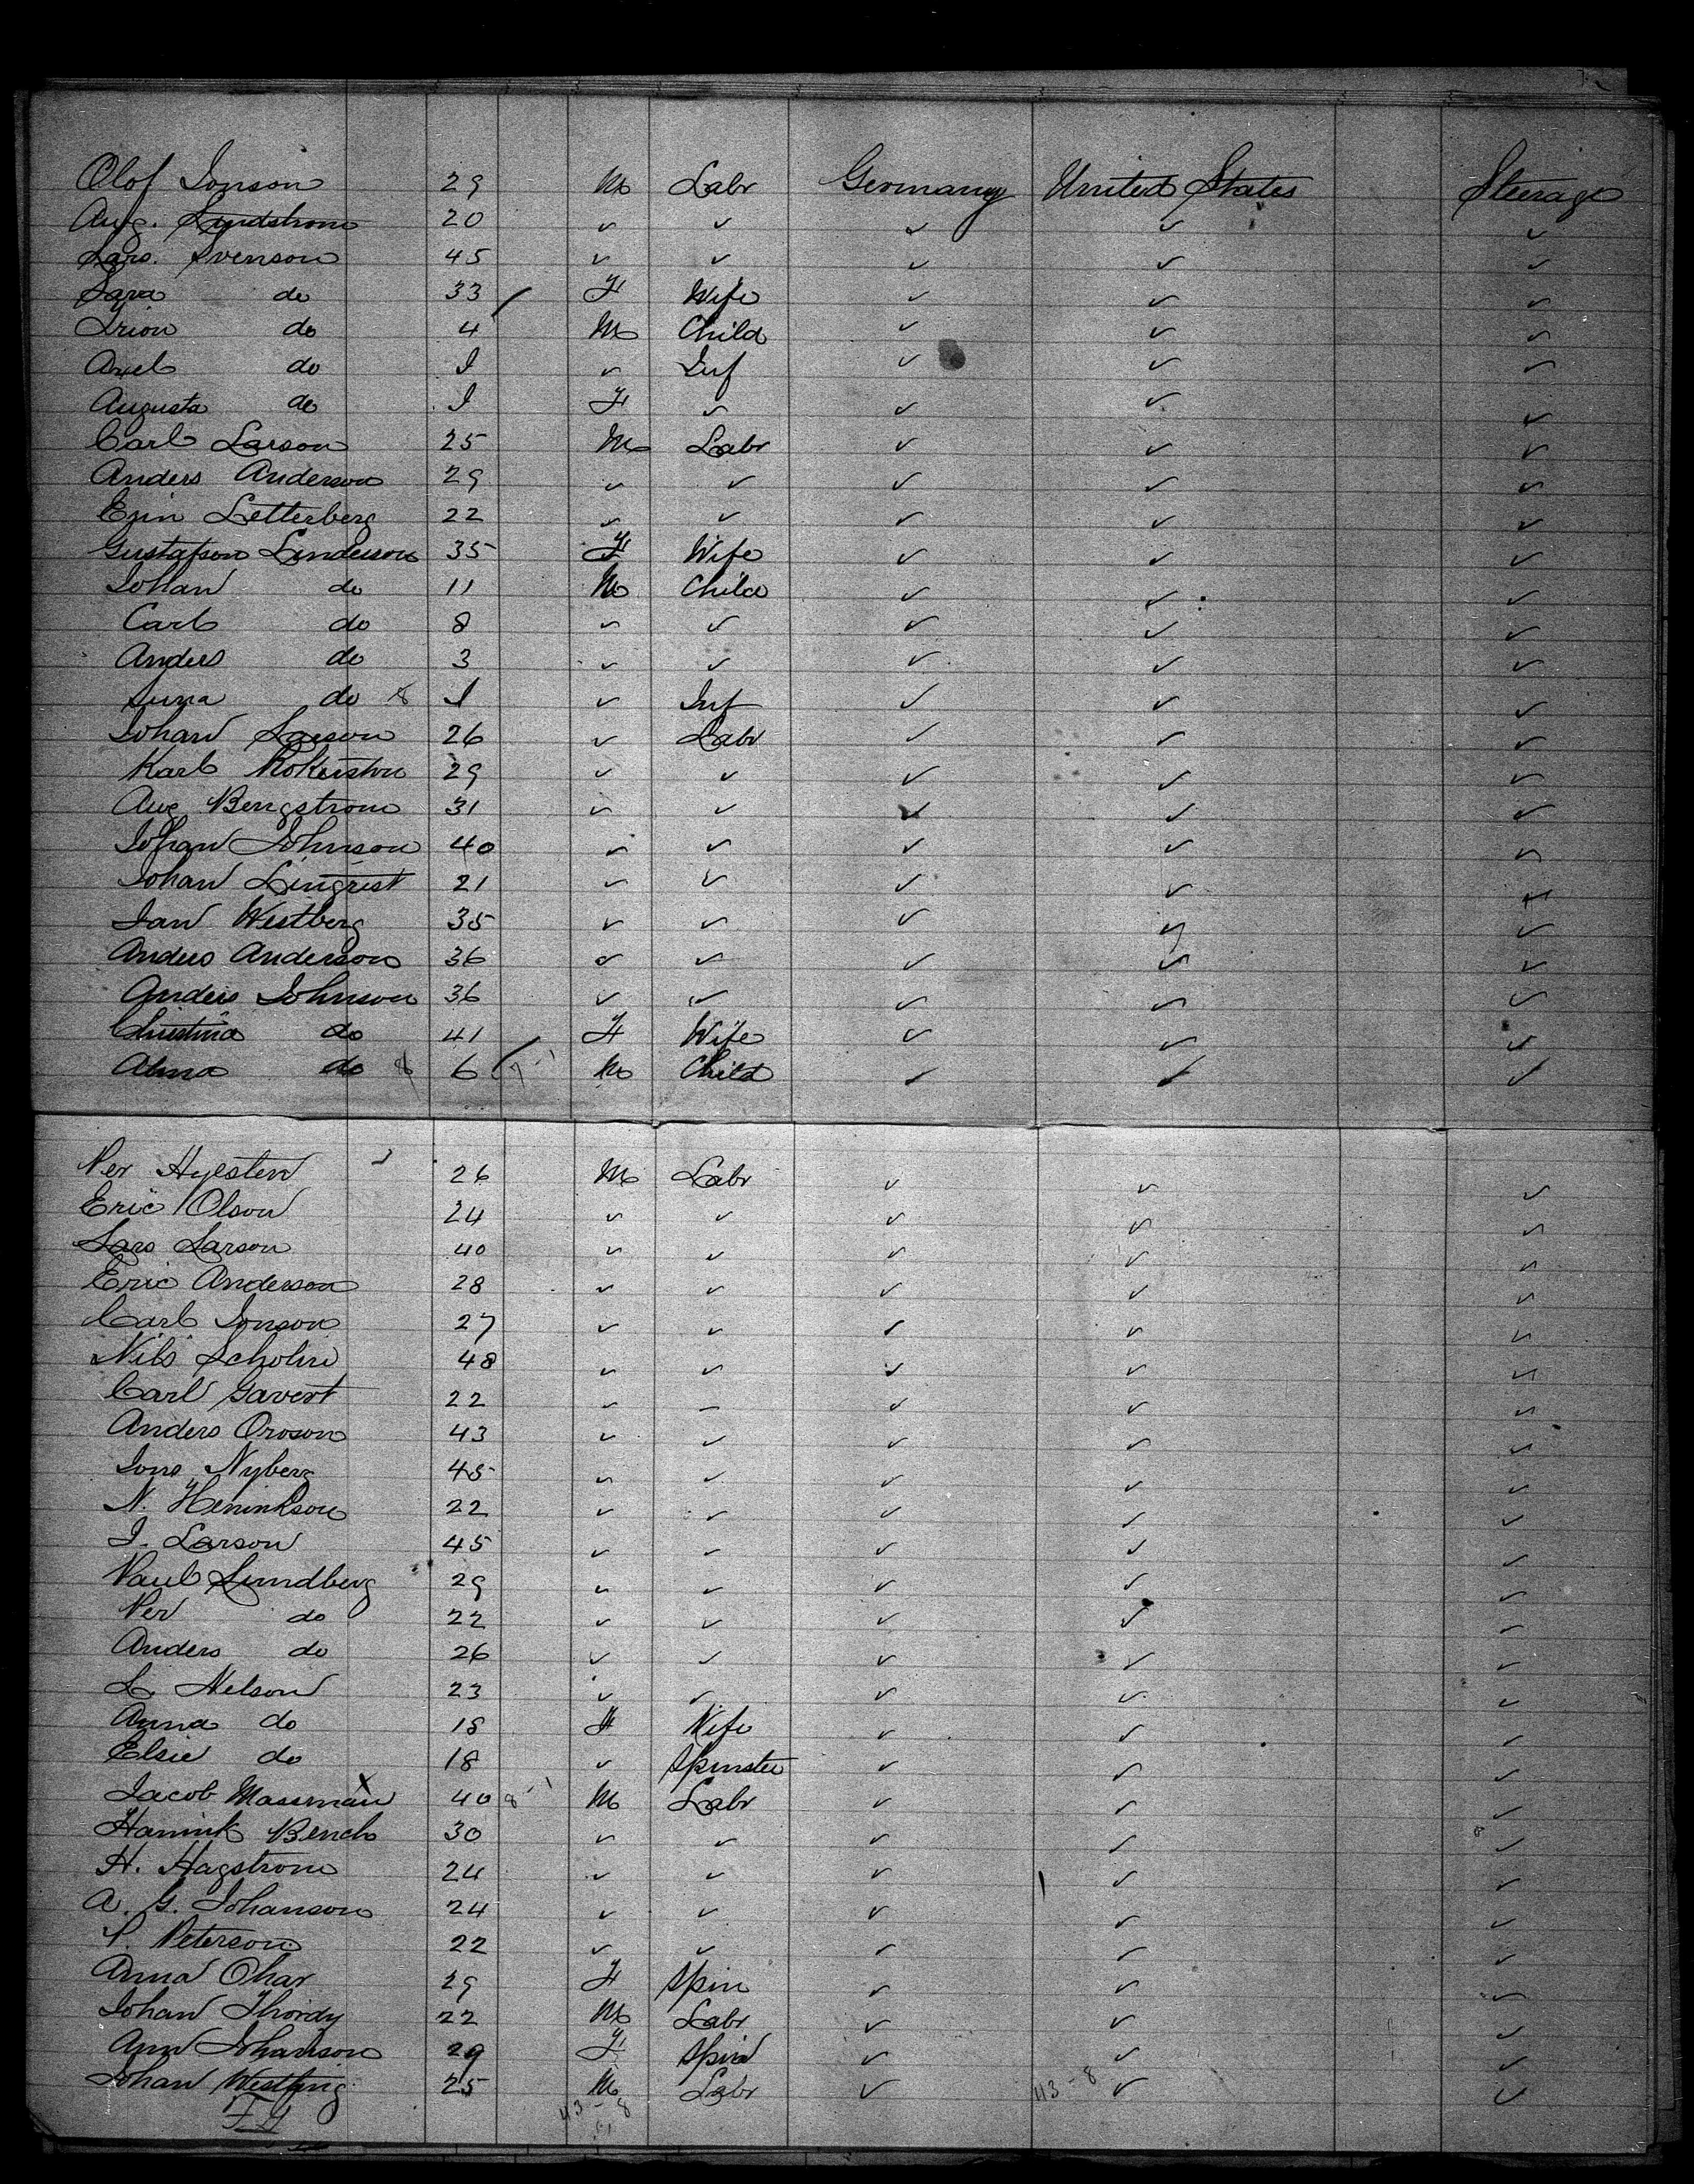 Olof Jonson 29 M Labr Germany United States Steerage
Aug. Lindstrom 20 ✓ ✓ ✓ ✓ ✓
Lars. Svenson 45 ✓ ✓ ✓ ✓ ✓
Sara do 33 F Wife ✓ ✓ ✓
do 4 M Child ✓ ✓ ✓
Axel do I ✓ Inf ✓ ✓ ✓
Augusta do I F ✓ ✓ ✓ ✓
Carl Larson 25 M Labr ✓ ✓ ✓
Anders Anderson 29 ✓ ✓ ✓ ✓ ✓
Letterberg 22 ✓ ✓ ✓ ✓ ✓
Gustafson Linderson 35 F Wife ✓ ✓ ✓
Johan do 11 M Child ✓ ✓ ✓
Carl do 8 ✓ ✓ ✓ ✓ ✓
Anders do 3 ✓ ✓ ✓ ✓ ✓
do 8 I ✓ Inf ✓ ✓ ✓
Johan Larson 26 ✓ Labr ✓ ✓ ✓
Karl 29 ✓ ✓ ✓ ✓ ✓
Aug Bengstrom 31 ✓ ✓ ✓ ✓ ✓
Johan Johnson 40 ✓ ✓ ✓ ✓ ✓
Johan Lingrist 21 ✓ ✓ ✓ ✓ ✓
Jan Westberg 35 ✓ ✓ ✓ ✓ ✓
Anders Anderson 36 ✓ ✓ ✓ ✓ ✓
Anders Johnson 36 ✓ ✓ ✓ ✓ ✓
Christina do 41 F Wife ✓ ✓ ✓
Alma do 8 6 M Child ✓ ✓ ✓
Per Hylsten 26 M Labr ✓ ✓ ✓
Eric Olson 24 ✓ ✓ ✓ ✓ ✓
Lars Larson 40 ✓ ✓ ✓ ✓ ✓
Eric Anderson 28 ✓ ✓ ✓ ✓ ✓
Carl Jonson 27 ✓ ✓ ✓ ✓ ✓
Nils Scholin 48 ✓ ✓ ✓ ✓ ✓
Carl Gavert 22 ✓ ✓ ✓ ✓ ✓
Anders Oroson 43 ✓ ✓ ✓ ✓ ✓
Jons Nyberg 45 ✓ ✓ ✓ ✓ ✓
N. Heninkson 22 ✓ ✓ ✓ ✓ ✓
J. Larson 45 ✓ ✓ ✓ ✓ ✓
Paul Lundberg 29 ✓ ✓ ✓ ✓ ✓
Per do 22 ✓ ✓ ✓ ✓ ✓
Anders do 26 ✓ ✓ ✓ ✓ ✓
L. Nelson 23 ✓ ✓ ✓ ✓ ✓
Anna do 18 F Wife ✓ ✓ ✓
Elsie do 18 ✓ Spinster ✓ ✓ ✓
Jacob Massman 40 M Labr ✓ ✓ ✓
Hannik Bench 30 ✓ ✓ ✓ ✓ ✓
H. Hagstrom 24 ✓ ✓ ✓ ✓ ✓
A. G. Johanson 24 ✓ ✓ ✓ ✓ ✓
P. Peterson 22 ✓ ✓ ✓ ✓ ✓
Anna Ohar 29 F Spin ✓ ✓ ✓
Johan Thordy 22 M Labr ✓ ✓ ✓
Ann Johanson 29 F Spin ✓ ✓ ✓
Johan Westling 25 M Labr ✓ 43-8 ✓ ✓
43-8